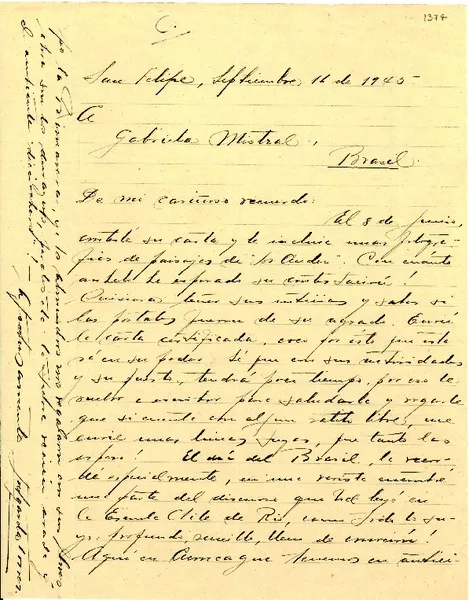 1374
C.
San Felipe, Septiembre 16 de 1945
A
Gabriela Mistral,
Brasil.
De mi cariñoso recuerdo:
El 8 de Junio,
contesté su carta y le incluí unas fotogra-
fías de paisajes de "Los Andes". Con cuánto
anhelo he esperado su contestación!
Quisiera tener sus noticias y saber si
las postales fueron de su agrado. Envié
la carta certificada, creo por esto que esté
ya en su poder. Sé que con sus actividades
y su puesto, tendrá poco tiempo, por eso le
vuelvo a escribir para saludarla y rogarle
que si cuenta con algún ratito libre, me
envíe unas líneas suyas, que tanto las
espero! El día del Brasil, la recor-
dé especialmente, en una revista encontré
una parte del discurso que Ud. leyó en
la Escuela Chile de Río, como todo lo su-
yo: profundo, sencillo, lleno de emoción!
Aquí en Aconcagua tenemos un antici-
po la Primavera, ya los almendros nos regalaron con sus flores